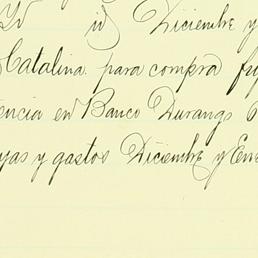 id Diciembre y
Catalina. para compra fr
tencia en Banco Durango
yas y gastos Diciembre y Ene